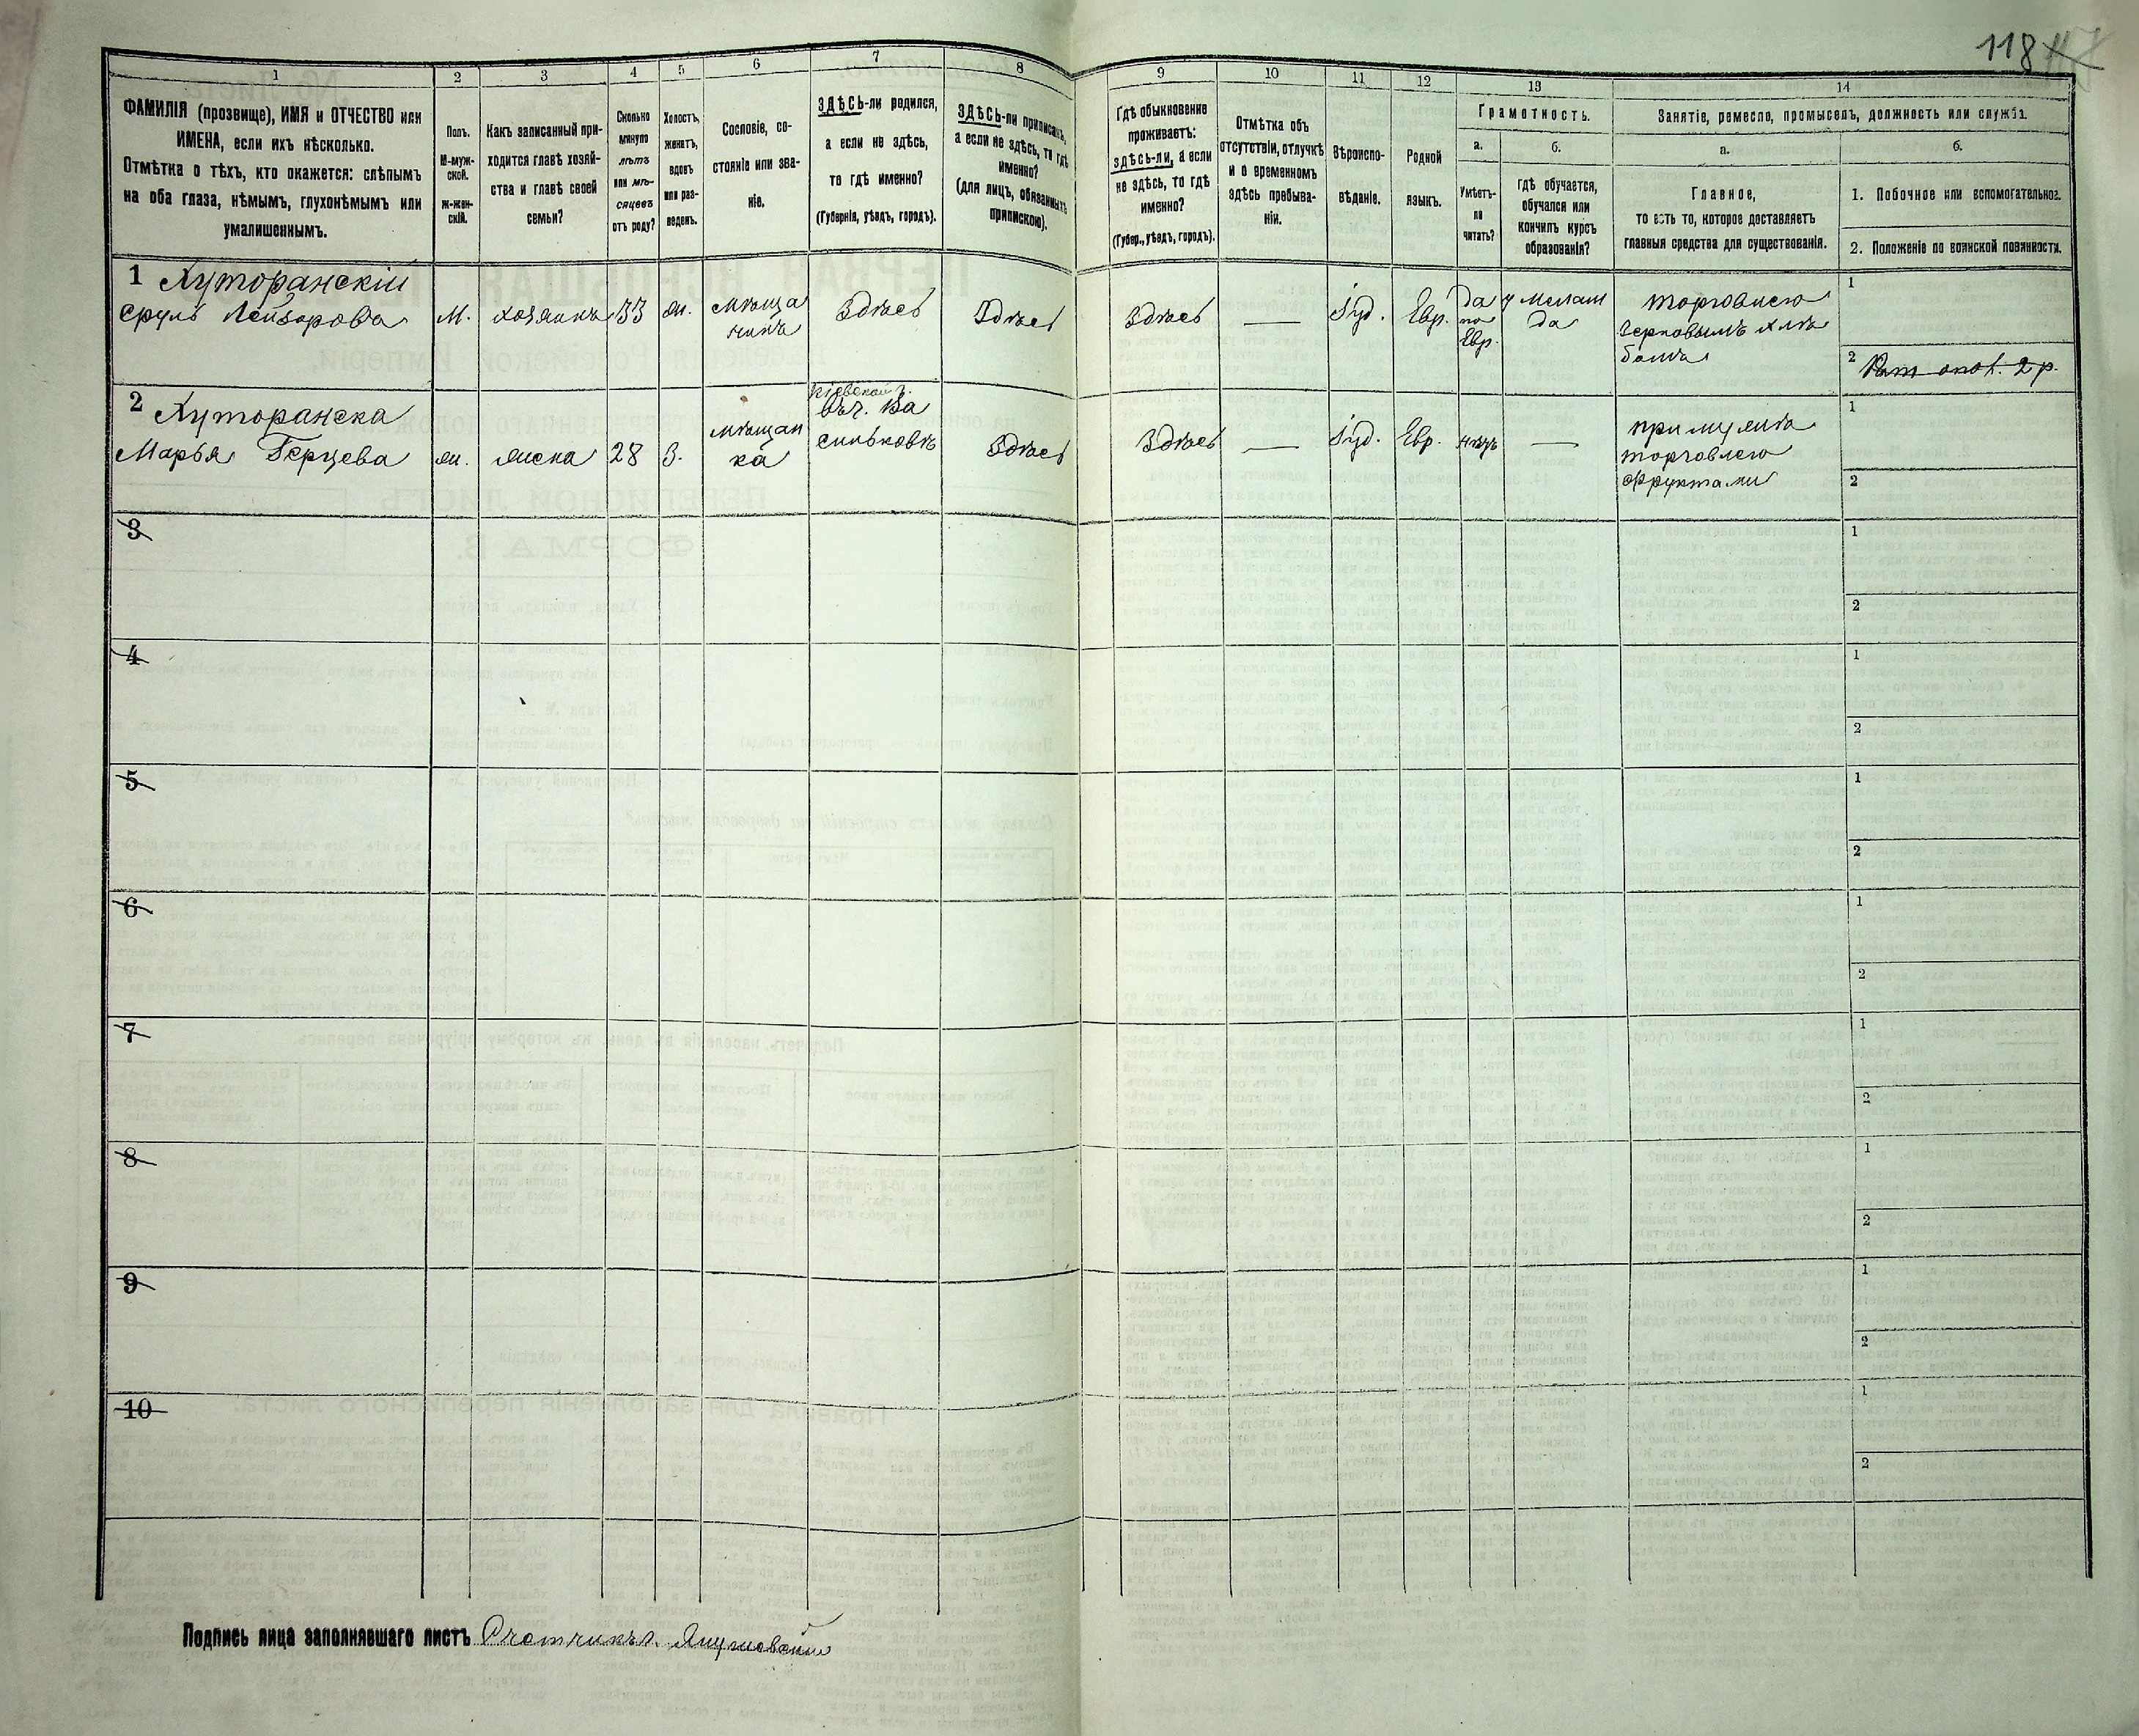 118
1
2
3
4
5
6
7
8
9
10
11
12
13
14
ФАМИЛІЯ (прозвище), ИМЯ и ОТЧЕСТВО или
ИМЕНА, если ихъ нѣсколько.
Отмѣтка о тѣхъ, кто окажется: слѣпымъ
на оба глаза, нѣмымъ, глухонѣмымъ или
умалишеннымъ.
Полъ.
М-муж-
ской.
Ж-жен-
скій.
Какъ записанный при-
ходится главѣ хозяй-
ства и главѣ своей
семьи?
Сколько
минуло
лѣтъ
или мѣ-
сяцевъ
отъ роду?
Холостъ,
женатъ,
вдовъ
или раз-
веденъ.
Сословіе, со-
стояніе или зва-
ніе.
ЗДѢСЬ-ли родился,
а если не здѣсь,
то гдѣ именно?
(Губернія, уѣздъ, городъ).
ЗДѢСЬ-ли приписанъ,
а если не здѣсь, то гдѣ
именно?
(для лицъ, обязанныхъ
припискою).
Гдѣ обыкновенно
проживаетъ:
здѣсь-ли, а если
не здѣсь, то гдѣ
именно?
(Губер., уѣздъ, городъ).
Отмѣтка объ
отсутствіи, отлучкѣ
и о временномъ
здѣсь пребыва-
ніи.
Вѣроиспо-
вѣданіе.
Родной
языкъ.
Грамотность.
а.
Умѣетъ-
ли
читать?
б.
гдѣ обучается,
обучался или
кончилъ курсъ
образованія?
Занятіе, ремесло, промыселъ, должность или служба.
а.
Главное,
то есть то, которое доставляетъ
главныя средства для существованія.
б.
1. Побочное или вспомогательное.
2. Положеніе по воинской повинности.
1 Хуторанскій
Сруль Лейзорова
М.
хозяинъ
33
ж.
мѣща
нинъ
Здѣсь
Здѣсь
Здѣсь
—
Іуд.
Евр.
Да
по
Евр.
у мелам
да
торговлею
зерновымъ хлѣ
бомъ
1
2
2 р.
2 Хуторанска
Марья Герцева
ж.
жена
28
З.
мѣщан
ка
Кіевской г.
Ва
сильковъ
Здѣсь
Здѣсь
—
Іуд.
Евр.
нѣтъ
—
при мужѣ
торговлею
фруктами
1
2
3
1
2
4
1
2
5
1
2
6
1
2
7
1
2
8
1
2
9
1
2
10
1
2
Подпись лица заполнявшаго листъ Счетчикъ